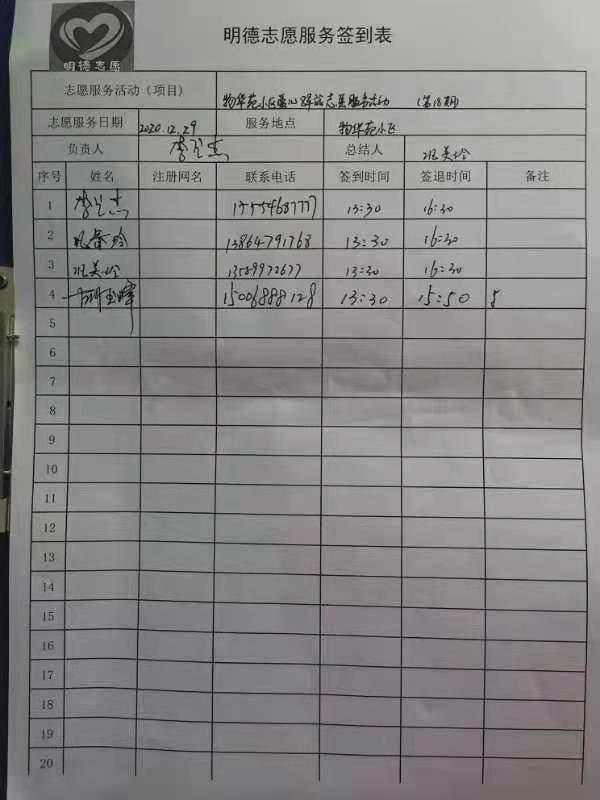 明德志愿
明德志愿服务签到表
志愿服务活动（项目） 物华苑小区爱心驿站志愿服务活动 （第18期）
志愿服务日期 2020.12.29 服务地点 物华苑小区
负责人 李 杰 总结人 美玲
序号 姓名 注册网名 联系电话 签到时间 签退时间 备注
1 李 杰 13:30 16:30
2 13864791768 13:30 16:30
3 美玲 13589972677 13:30 16:30
4 15006888128 13:30 15:50
5
6
7
8
9
10
11
12
13
14
15
16
17
18
19
20